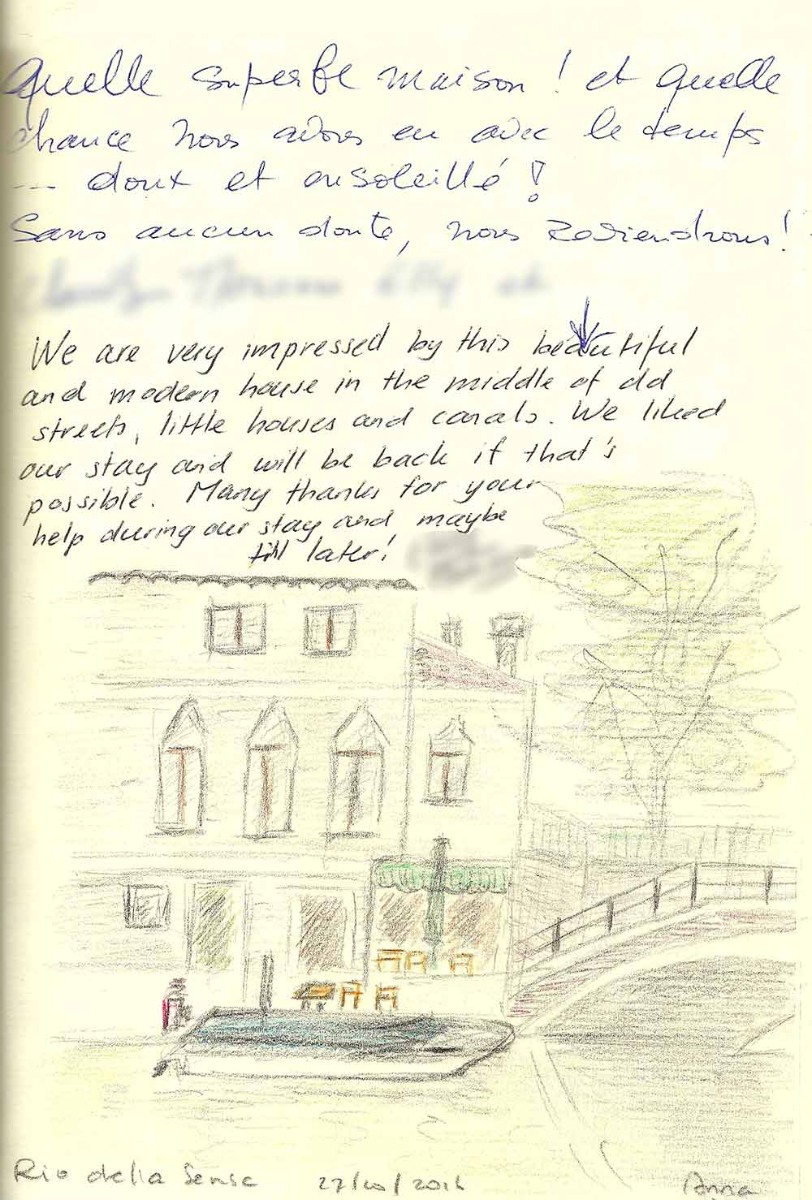 Quelle superbe maison ! et quelle
chance nous avons eu avec le temps
--- doux et ensoleillé !
Sans aucun doute, nous reviendrons !
We are very impressed by this beautiful
and modern house in the middle of old
streets, little houses and canals. We liked
our stay and will be back if that's
possible. Many thanks for your
help during our stay and maybe
till later!
Rio della Sensa
Anna